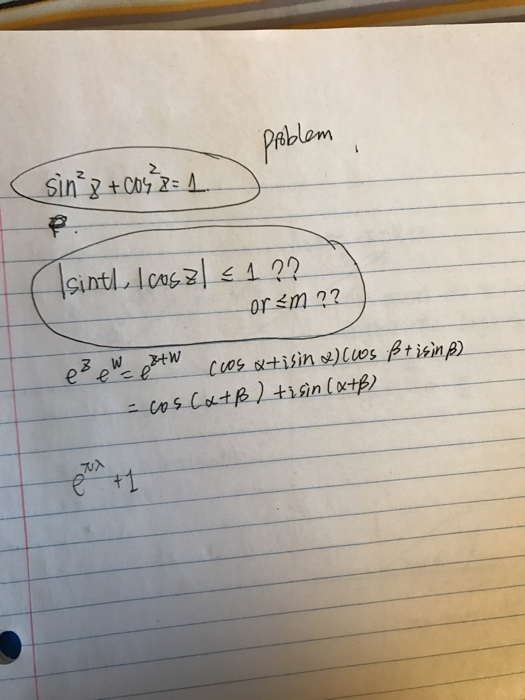 Problem
sin²z + cos²z = 1.
P.
|sint|, |cosz| ≤ 1 ??
or ≤ m ??
e^z e^w = e^{z+w} (cos α + i sin α)(cos β + i sin β)
= cos(α+β) + i sin(α+β)
+1